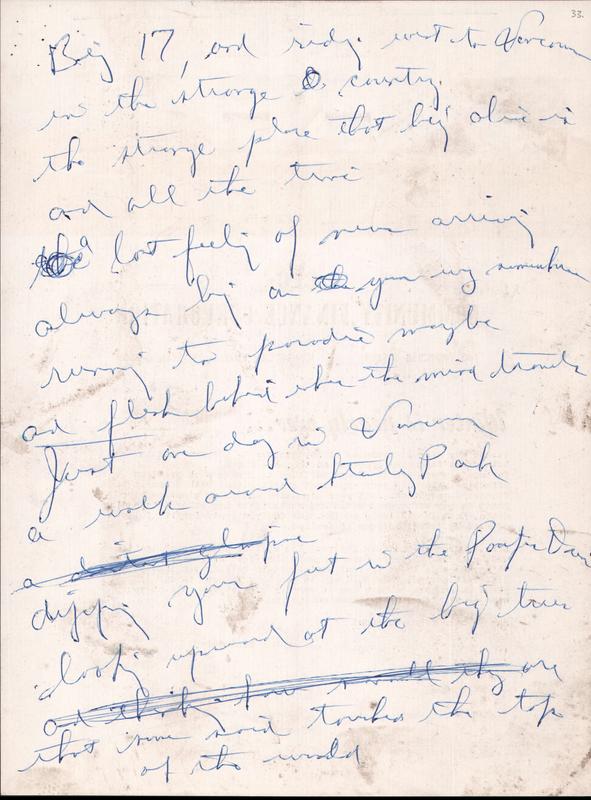 33.
Being 17, and riding west to Vancouver
in the strange country
the strange place that being alive is
and all the time
a lost feeling of never arriving
always being on your way somewhere
running to paradise maybe
and flesh behind when the mind travels
Just one day in Vancouver
a walk around Stanley Park
a distant glimpse
dipping your feet in the Pacific Ocean
looking upward at the big trees
and thinking how small they are
that some said touches the top
of the world